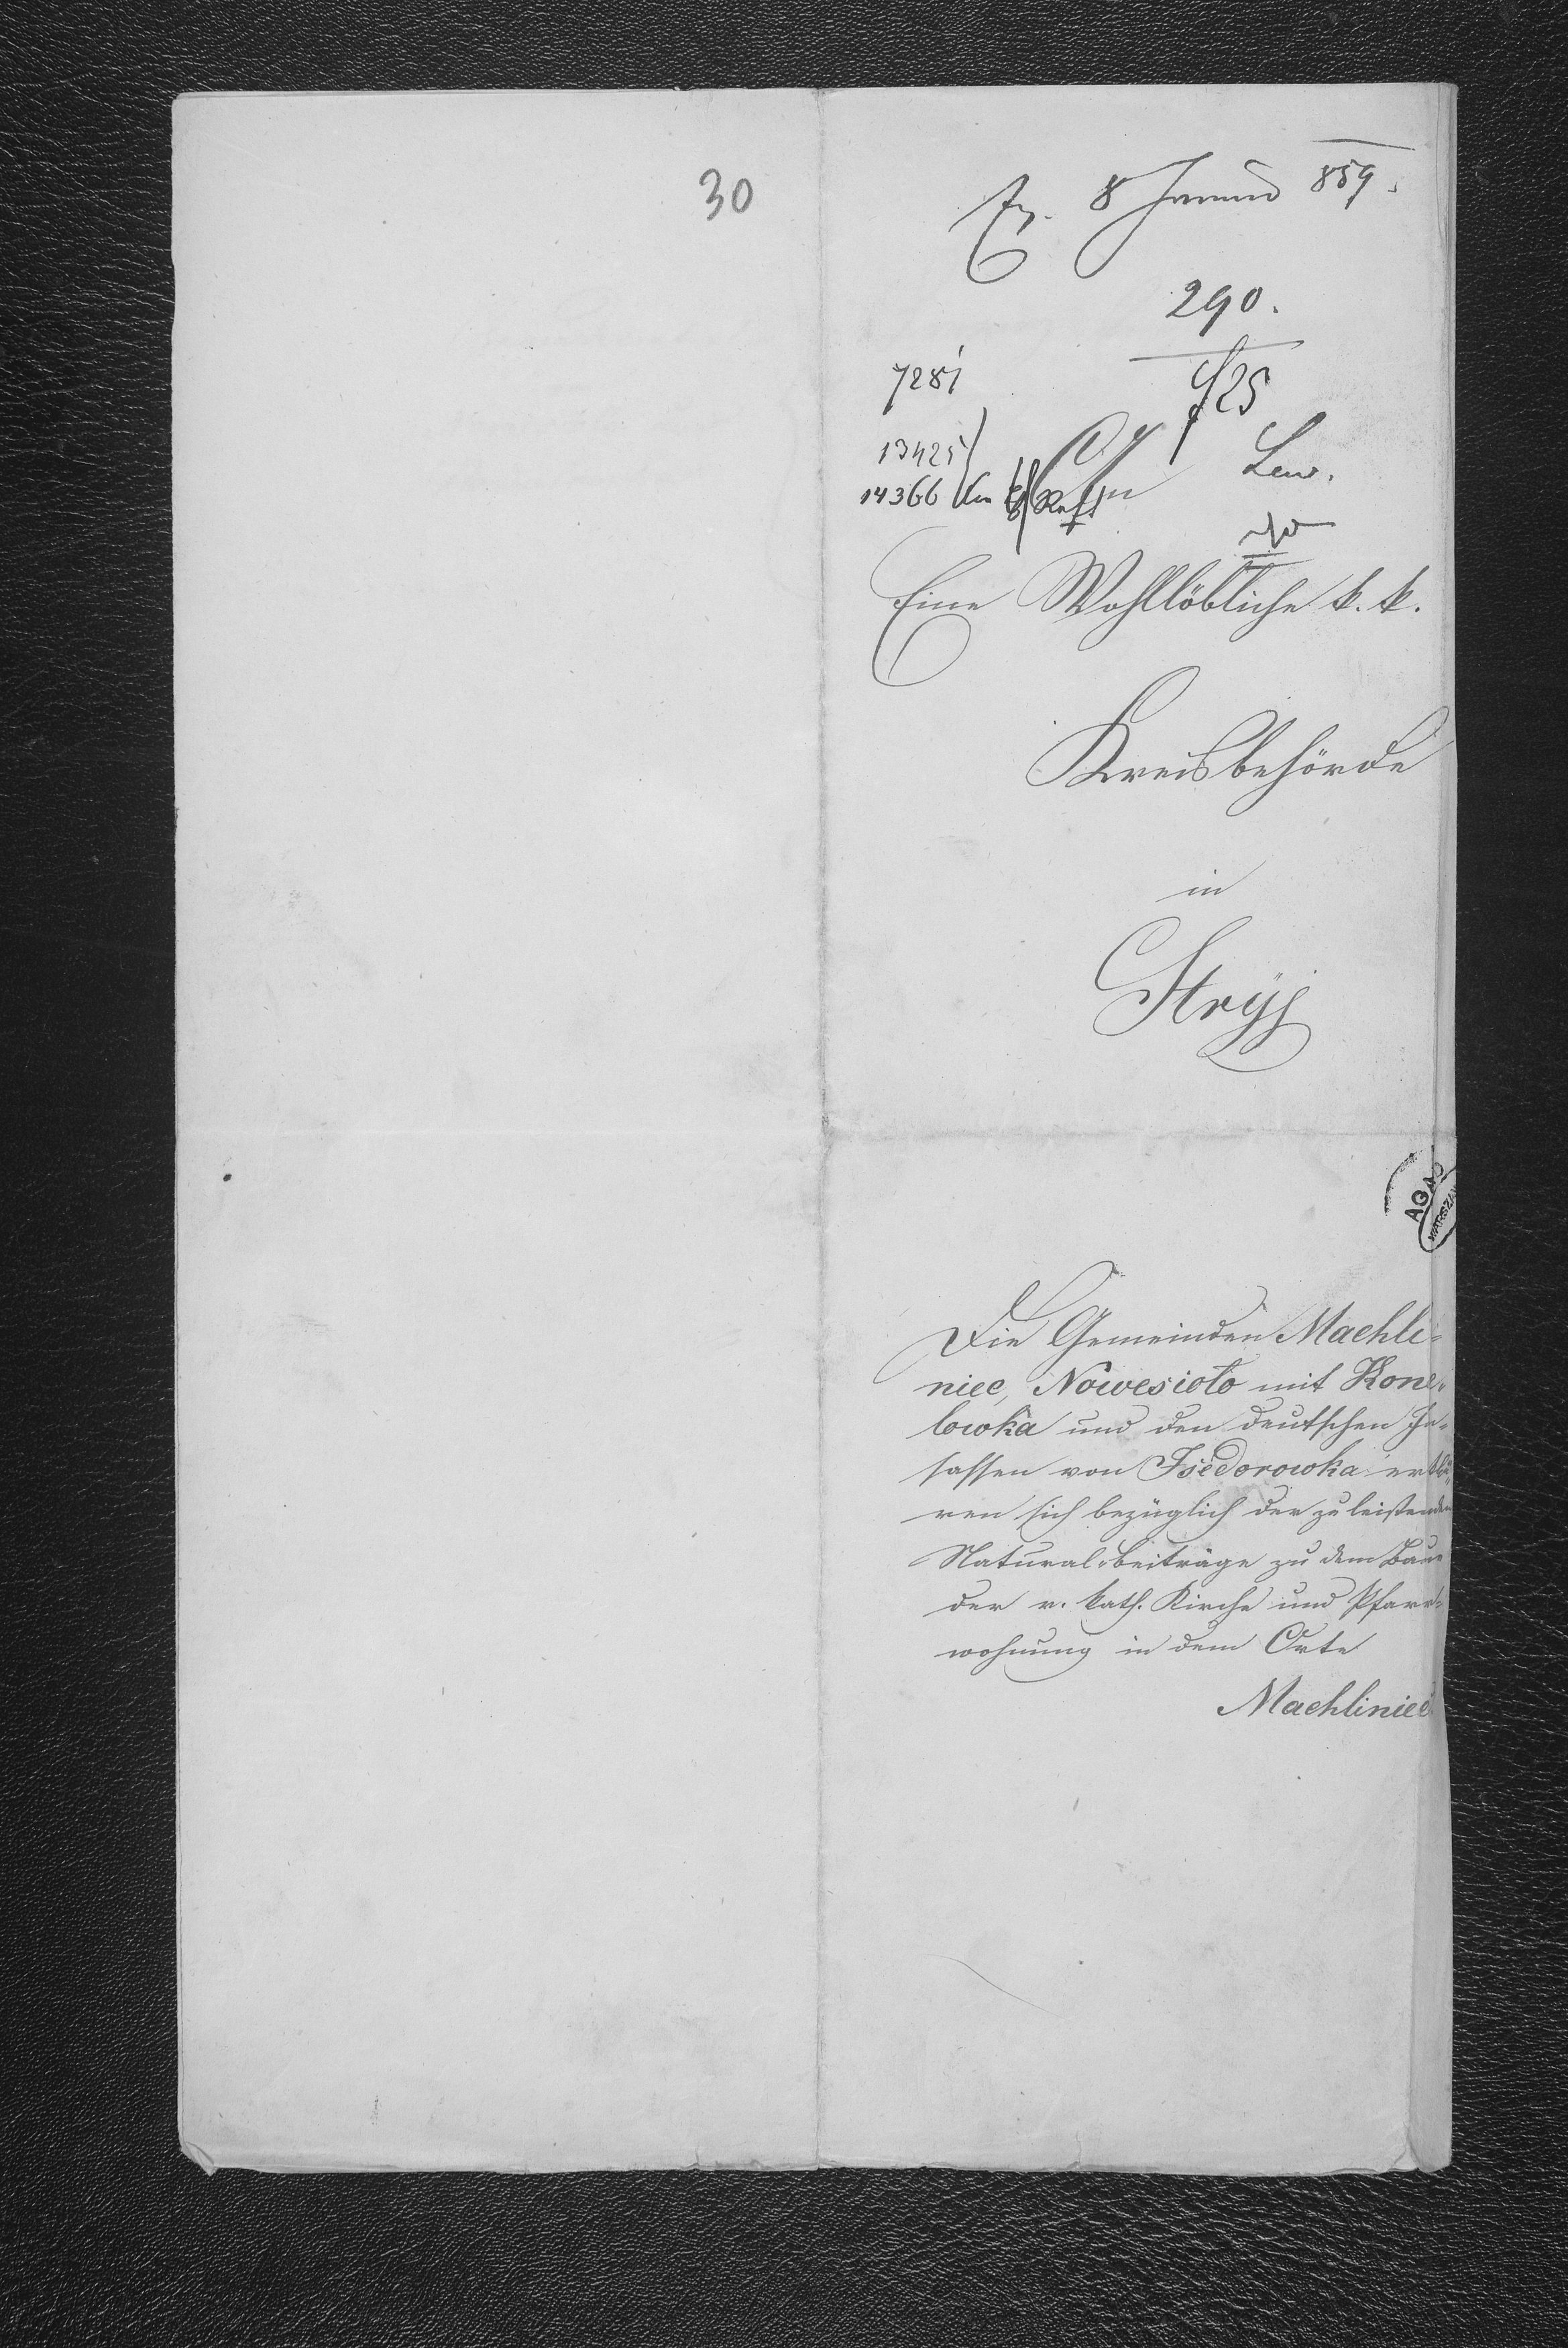 30
8 Januar 859.
290.
7281
13425
14366
Eine Wohllöbliche k. k.
Kreisbehörde
in
Stryj
AGAD
WARSZA
Die Gemeinden Machli=
niec, Nowesioło mit Kone=
lowka und den deutschen In=
sassen von Isedorowka erklä=
ren sich bezüglich der zu leistenden
Natural-beiträge zu dem Baue
der r. kath. Kirche und Pfarr=
wohnung in dem Orte
Machliniec